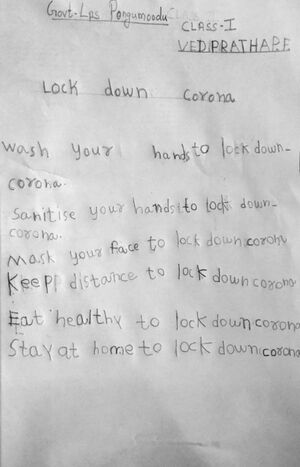 Govt-Lps Pongumoodu
CLASS-I
VEDIPRATHARE
Lock down corona
Wash your hands to lock down-
corona.
Sanitise your hands to lock down-
corona.
Mask your face to lock down corona
Keep distance to lock down corona
Eat healthy to lock down corona
Stay at home to lock down corona